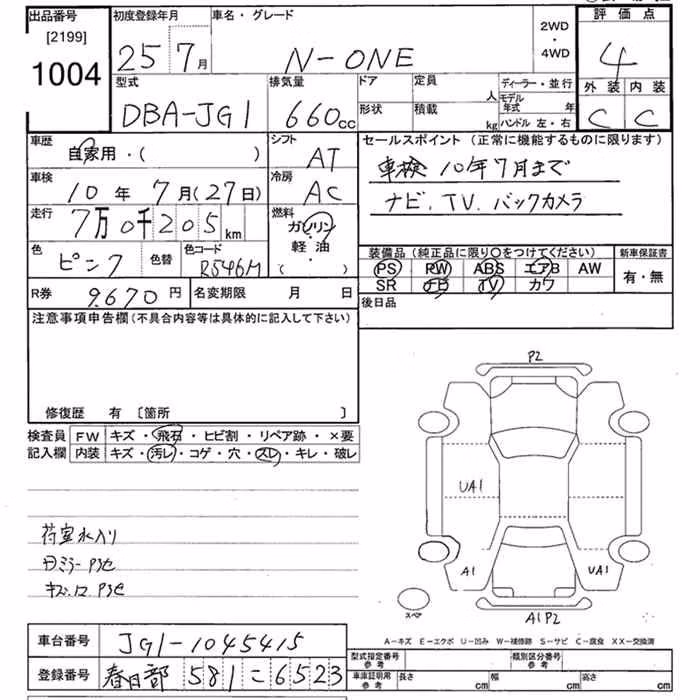 出品番号 初度登録年月 車名・グレード 2WD・4WD 評価点
[2199]
1004 25 7月 N-ONE 4
型式 排気量 ドア 定員 人 ディーラー・並行 外装 内装
DBA-JG1 660cc 形状 積載 kg モデル年式 年 C C
ハンドル 左・右
車歴 自家用・( ) シフト AT セールスポイント(正常に機能するものに限ります)
車検 10年7月(27日) 冷房 AC 車検 10年7月まで
走行 7万0千205km 燃料 ガソリン・軽油 ( ) ナビ、TV、バックカメラ
色 ピンク 色替 色コード R546M 装備品(純正品に限り○をつけてください) 新車保証書
PS RW ABS エアB AW 有・無
SR ナビ TV カワ
R券 9,670円 名変期限 月 日 後日品
注意事項申告欄(不具合内容等は具体的に記入して下さい)
修復歴 有 [箇所 ]
検査員 FW キズ・飛石・ヒビ割・リペア跡・×要
記入欄 内装 キズ・汚レ・コゲ・穴・スレ・キレ・破レ
P2
UA1
A1 UA1
A1P2
スペア
荷室水入り
A-キズ E-エクボ U-凹み W-補修跡 S-サビ C-腐食 XX-交換済
車台番号 JG1-1045415 型式指定番号 参考 類別区分番号 参考
登録番号 春日部 581 こ 6523 車庫証明用 参考 長さ cm 幅 cm 高さ cm